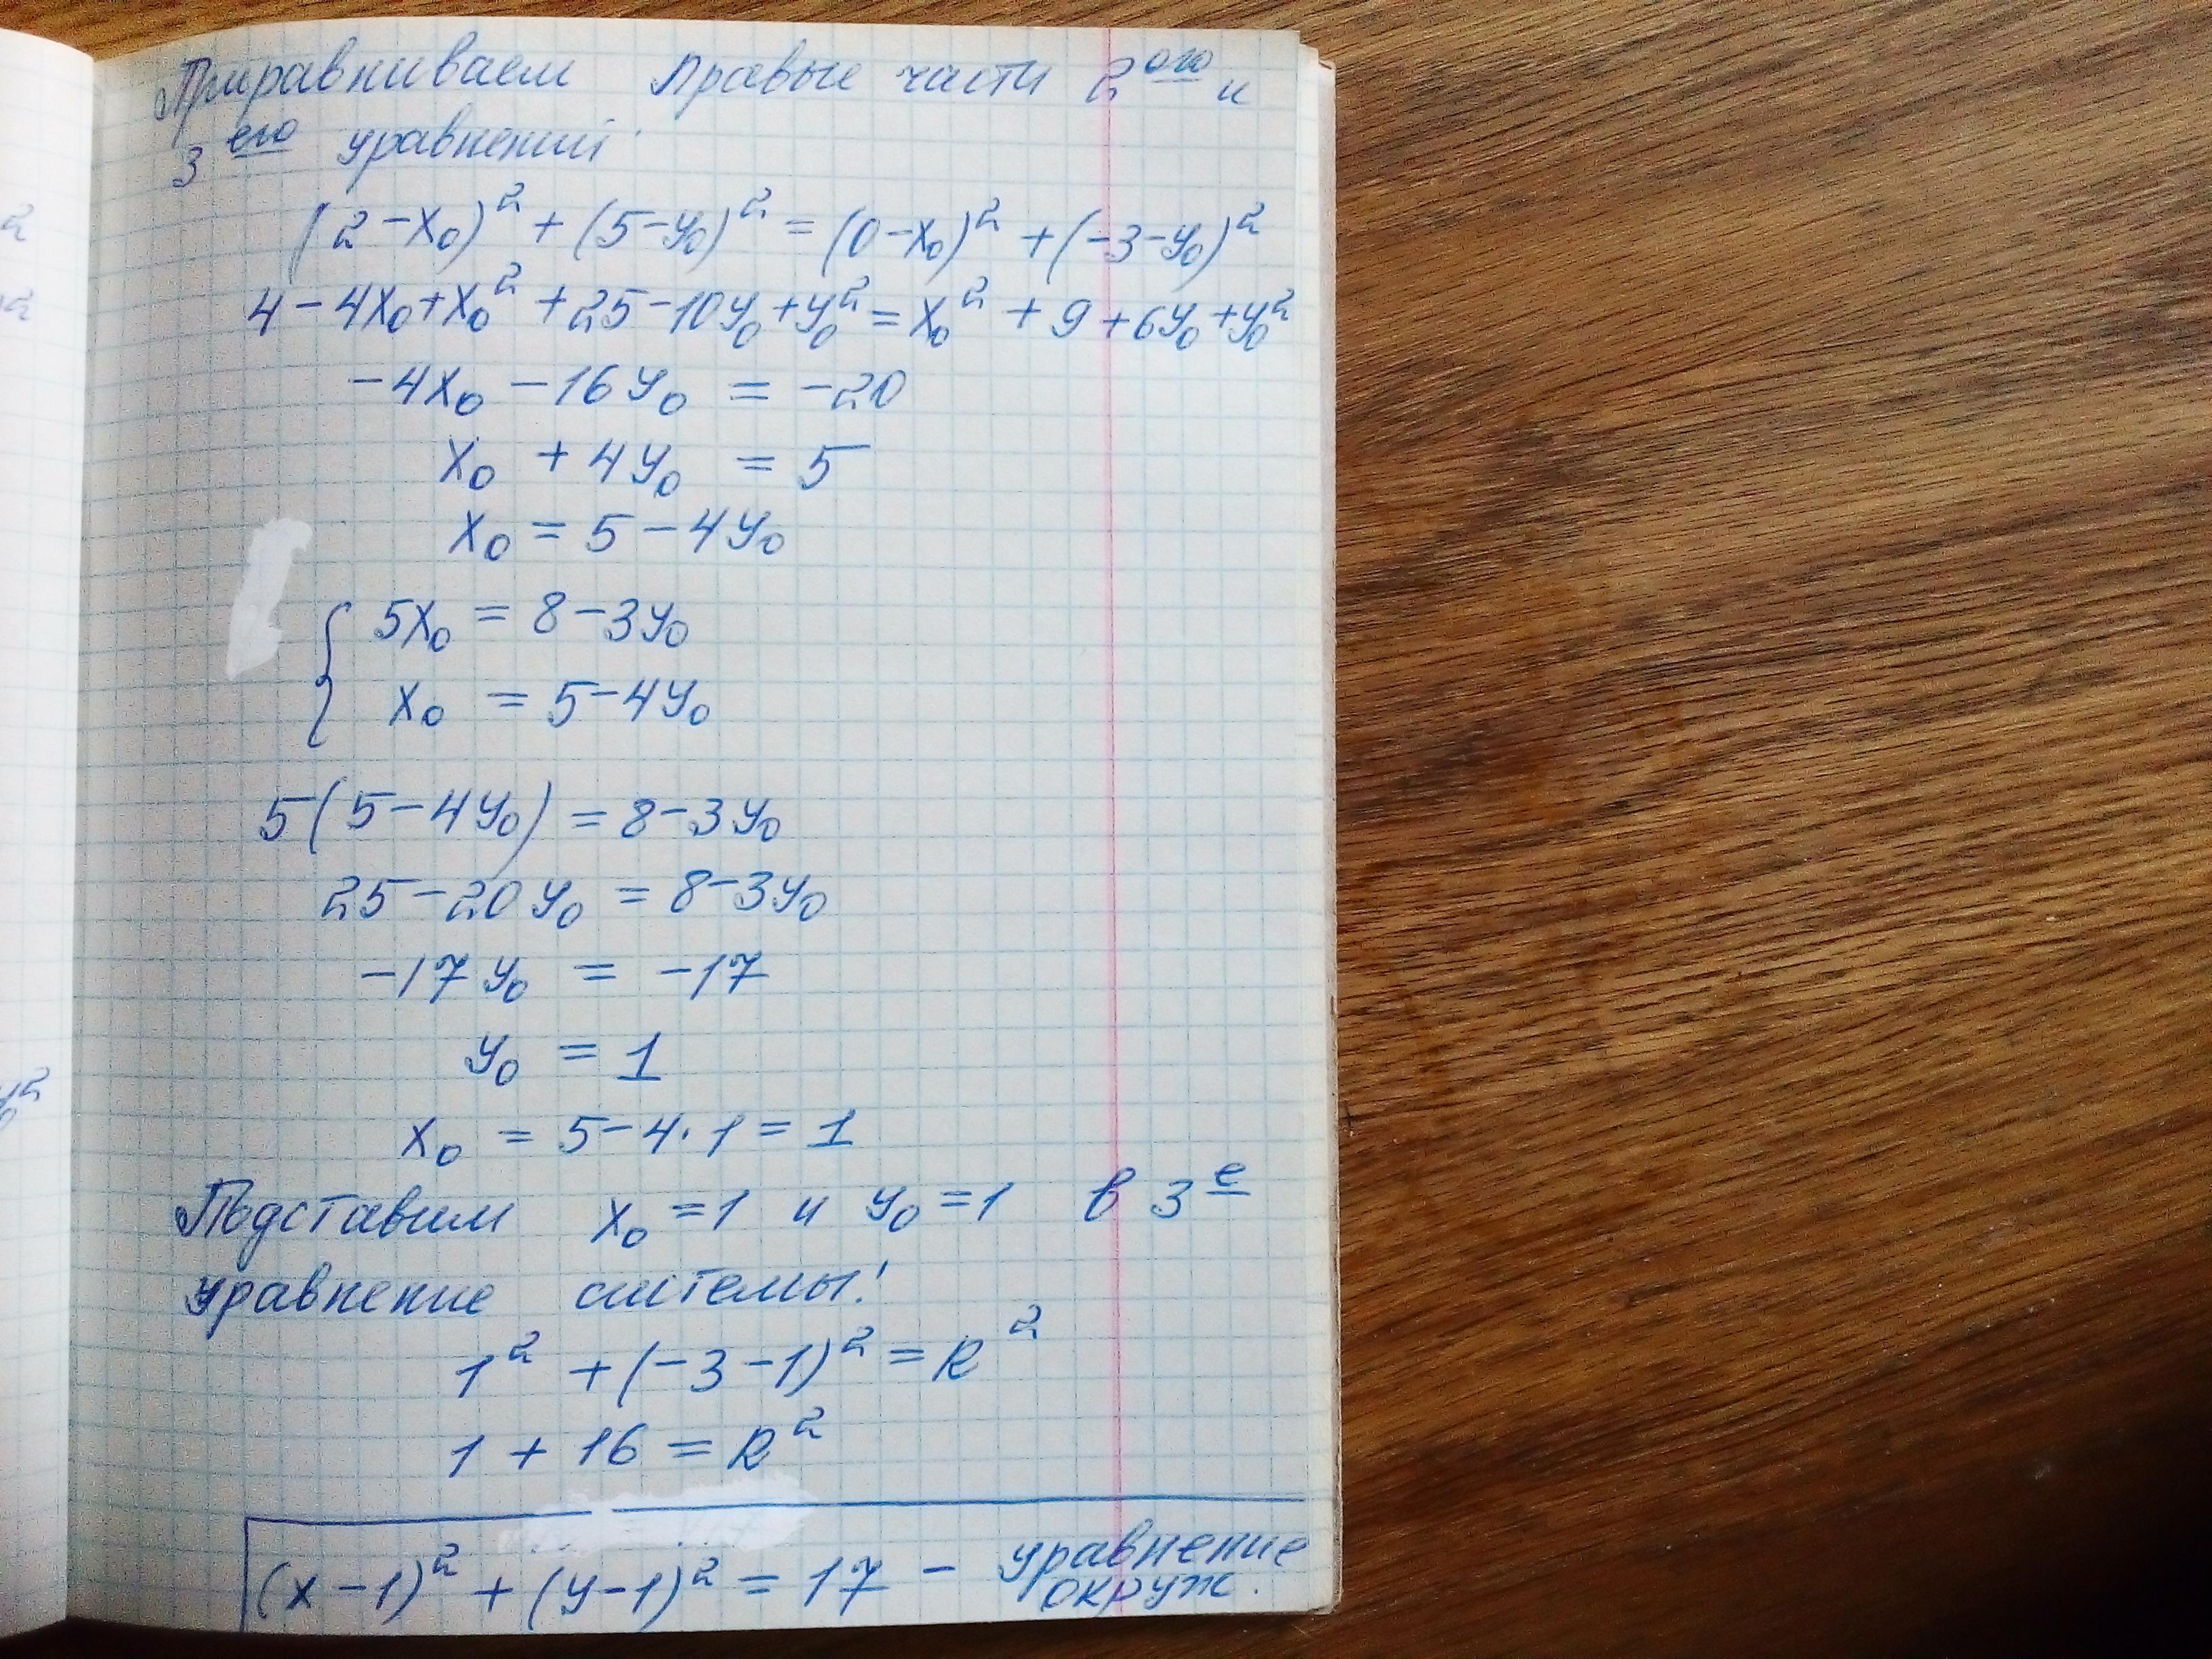 Приравниваем правые части 2ого и
3его уравнений
(2-x₀)² + (5-y₀)² = (0-x₀)² + (-3-y₀)²
4 - 4x₀ + x₀² + 25 - 10y₀ + y₀² = x₀² + 9 + 6y₀ + y₀²
-4x₀ - 16y₀ = -20
x₀ + 4y₀ = 5
x₀ = 5 - 4y₀
{ 5x₀ = 8 - 3y₀
x₀ = 5 - 4y₀
5(5 - 4y₀) = 8 - 3y₀
25 - 20y₀ = 8 - 3y₀
-17y₀ = -17
y₀ = 1
x₀ = 5 - 4·1 = 1
Подставим x₀ = 1 и y₀ = 1 в 3е
уравнение системы!
1² + (-3 - 1)² = R²
1 + 16 = R²
(x - 1)² + (y - 1)² = 17 - уравнение
окруж.